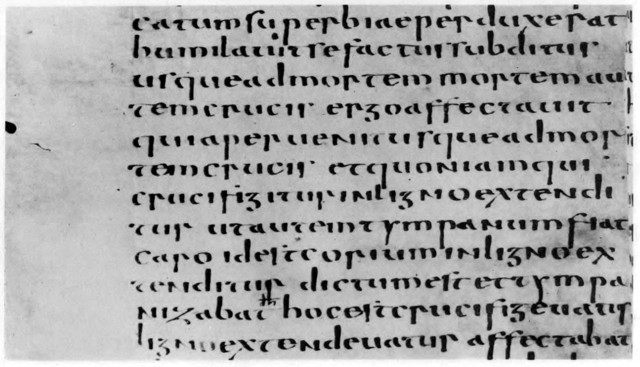 catumsuperbiaeperduxerat
humilauitsefactussubditus
usqueadmortemmortemau
temcrucis ergoaffectauit
quiaperuenitusqueadmor
temcrucis etquoniamqui
crucifigiturinlignoextendi
tur utautemtympanumfiat
caro idestcoriuminlignoex
tenditur dictumestettympa
nizabat hocestcrucifigeuatur
lignoextendeuatur affectabat